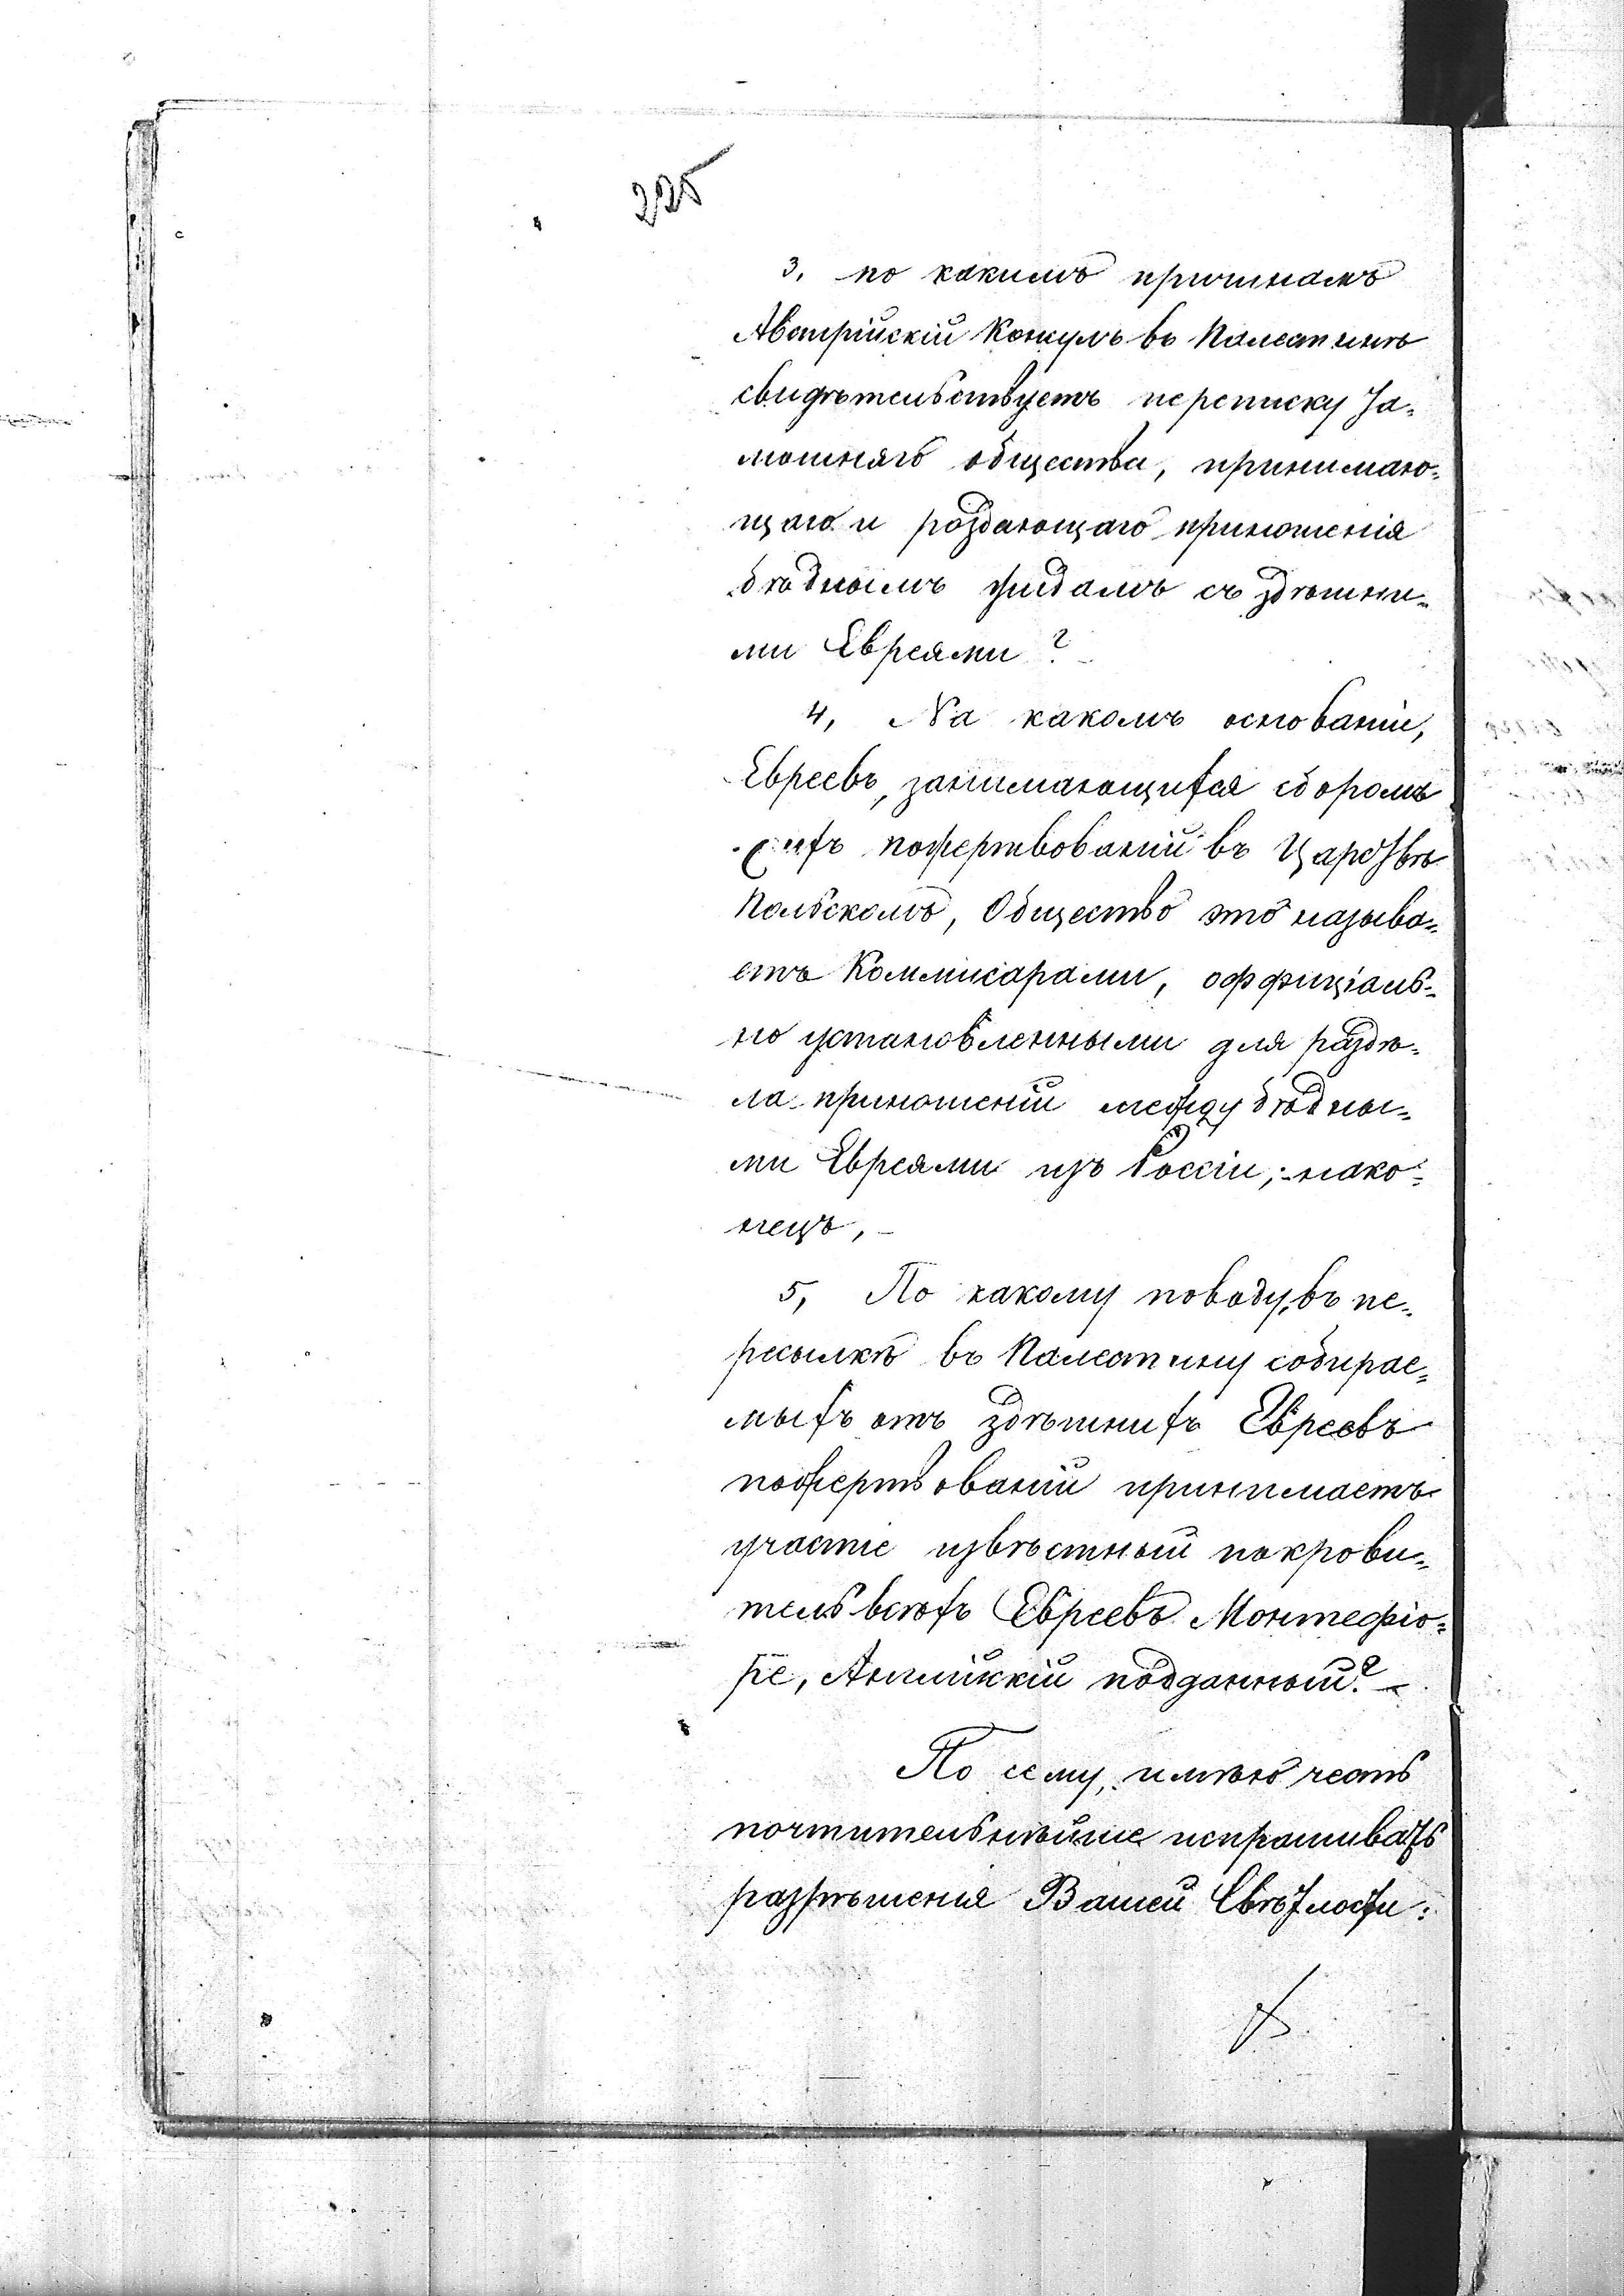 225
3. по какимъ причинамъ
Австрійскій Консулъ въ Палестинѣ
свидѣтельствуетъ переписку Та-
мошняго общества, принимаю-
щаго и роздающаго приношенія
бѣднымъ жидамъ съ здѣшни-
ми Евреями?
4, На какомъ основаніи,
Евреевъ, занимающихся сборомъ
сихъ пожертвованій въ Царствѣ
Польскомъ, Общество это называ-
етъ Коммисарами, оффиціаль-
но установленными для раздѣ-
ла приношеній между бѣдны-
ми Евреями изъ Россіи; нако-
нецъ, -
5, По какому поводу, въ пе-
ресылкѣ въ Палестину собирае-
мыхъ отъ здѣшнихъ Евреевъ
пожертвованій принимаетъ
участіе извѣстный покрови-
тель всѣхъ Евреевъ Монтефіо-
ре, Англійскій подданный? -
По сему, имѣю честь
почтительнѣйше испрашивать
разрѣшенія Вашей Свѣтлости: